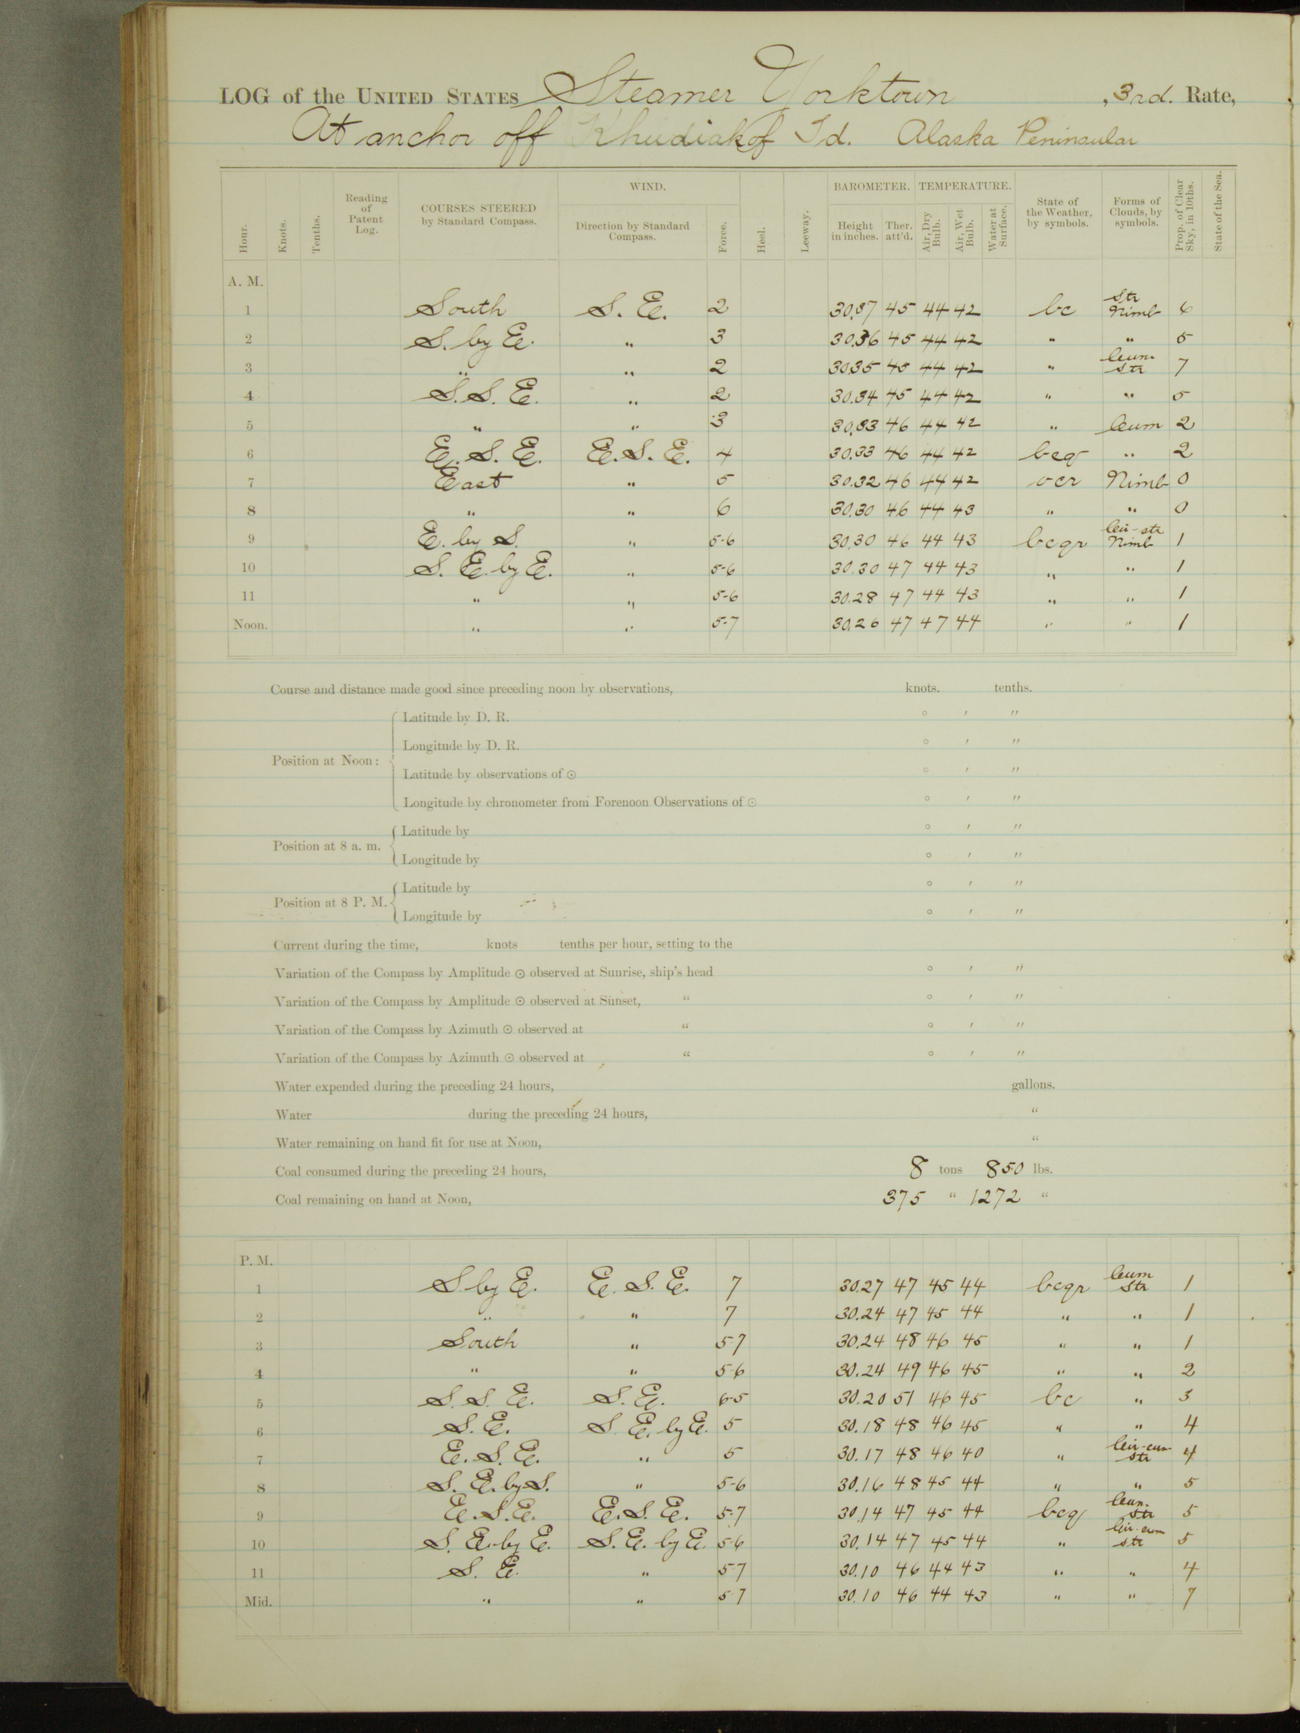 LOG of the UNITED STATES Steamer Yorktown, 3rd. Rate,
At anchor off Khudiakof Id. Alaska Peninsular
Hour. Knots. Tenths. Reading of Patent Log. COURSES STEERED by Standard Compass. WIND. Direction by Standard Compass. Force. Heel. Leeway. BAROMETER. Height in inches. Ther. att'd. TEMPERATURE. Air, Dry Bulb. Air, Wet Bulb. Water at Surface. State of the Weather, by symbols. Forms of Clouds, by symbols. Prop. of Clear Sky, in 10ths. State of the Sea.
A. M.
1 South S. E. 2 30.37 45 44 42 bc Str Nimb 6
2 S. by E. " 3 30.36 45 44 42 " " 5
3 " " 2 30.35 45 44 42 " Cum. Str 7
4 S. S. E. " 2 30.34 45 44 42 " " 5
5 " " 3 30.33 46 44 42 " Cum 2
6 E. S. E. E. S. E. 4 30.33 46 44 42 bcq " 2
7 East " 5 30.32 46 44 42 ocr Nimb 0
8 " " 6 30.30 46 44 43 " " 0
9 E. by S. " 5-6 30.30 46 44 43 bcqr Cir-str Nimb 1
10 S. E. by E. " 5-6 30.30 47 44 43 " " 1
11 " " 5-6 30.28 47 44 43 " " 1
Noon. " " 5-7 30.26 47 47 44 " " 1
Course and distance made good since preceding noon by observations, knots. tenths.
Position at Noon: Latitude by D. R. ° ′ ″
Longitude by D. R. ° ′ ″
Latitude by observations of ☉ ° ′ ″
Longitude by chronometer from Forenoon Observations of ☉ ° ′ ″
Position at 8 a. m. Latitude by ° ′ ″
Longitude by ° ′ ″
Position at 8 P. M. Latitude by ° ′ ″
Longitude by ° ′ ″
Current during the time, knots tenths per hour, setting to the
Variation of the Compass by Amplitude ☉ observed at Sunrise, ship's head ° ′ ″
Variation of the Compass by Amplitude ☉ observed at Sunset, " ° ′ ″
Variation of the Compass by Azimuth ☉ observed at " ° ′ ″
Variation of the Compass by Azimuth ☉ observed at " ° ′ ″
Water expended during the preceding 24 hours, gallons.
Water during the preceding 24 hours, "
Water remaining on hand fit for use at Noon, "
Coal consumed during the preceding 24 hours, 8 tons 850 lbs.
Coal remaining on hand at Noon, 375 " 1272 "
P. M.
1 S by E. E. S. E. 7 30.27 47 45 44 bcqr Cum Str 1
2 " " 7 30.24 47 45 44 " " 1
3 South " 5-7 30.24 48 46 45 " " 1
4 " " 5-6 30.24 49 46 45 " " 2
5 S. S. E. S. E. 6-5 30.20 51 46 45 bc " 3
6 S. E. S. E. by E. 5 30.18 48 46 45 " " 4
7 E. S. E. " 5 30.17 48 46 40 " Cir-cum str 4
8 S. E. by S. " 5-6 30.16 48 45 44 " " 5
9 E. S. E. E. S. E. 5-7 30.14 47 45 44 bcq Cum. Str 5
10 S. E. by E. S. E. by E 5-6 30.14 47 45 44 " Cir-cum str 5
11 S. E. " 5-7 30.10 46 44 43 " " 4
Mid. " " 5-7 30.10 46 44 43 " " 7